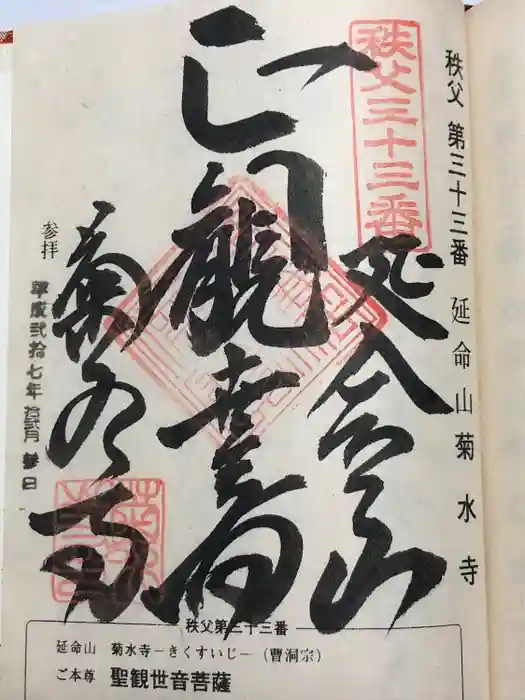 秩父 第三十三番 延命山 菊水寺
秩父三十三番
延命山
菊水寺
参拝 平成弐拾七年 拾弐月 参日
秩父第三十三番
延命山 菊水寺―きくすいじ―(曹洞宗)
ご本尊 聖観世音菩薩